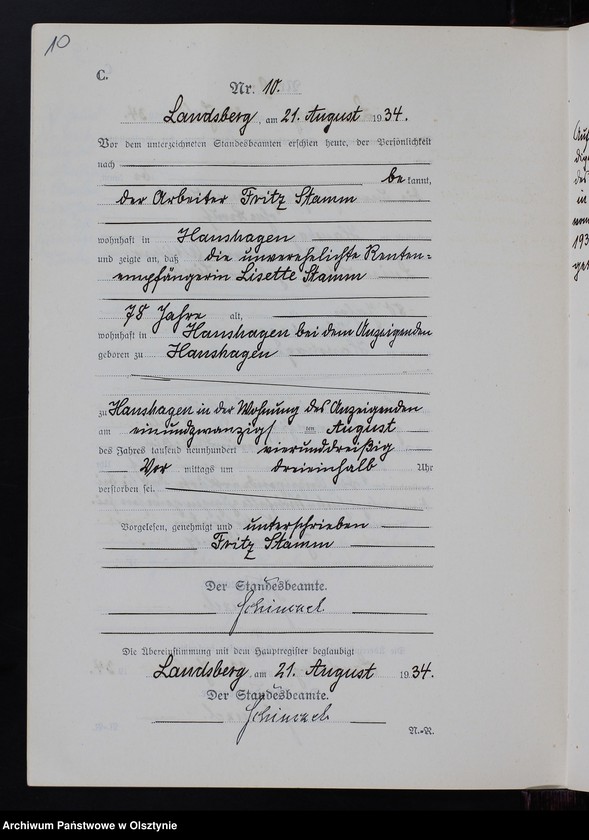 10
C.
Nr. 10.
Landsberg, am 21. August 1934.
Vor dem unterzeichneten Standesbeamten erschien heute, der Persönlichkeit
nach
bekannt,
der Arbeiter Fritz Stamm
wohnhaft in Hanshagen
und zeigte an, daß die unverehelichte Renten=
empfängerin Lisette Stamm
78 Jahre alt,
wohnhaft in Hanshagen bei dem Anzeigenden
geboren zu Hanshagen
zu Hanshagen in der Wohnung des Anzeigenden
am einundzwanzigsten August
des Jahres tausend neunhundert vierunddreißig
Vor mittags um dreieinhalb Uhr
verstorben sei.
Vorgelesen, genehmigt und unterschrieben
Fritz Stamm
Der Standesbeamte.
Die Übereinstimmung mit dem Hauptregister beglaubigt
Landsberg, am 21. August 1934.
Der Standesbeamte.
N.-R.
193
Archiwum Państwowe w Olsztynie